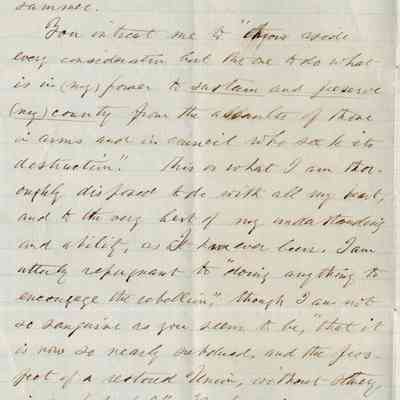 summer.
You intreat me to "throw aside
every consideration but the one to do what
is in (my) power to sustain and preserve
(my) country from the assaults of those
in arms and in council who seek its
destruction". This is what I am thor-
oughly disposed to do with all my heart,
and to the very best of my understanding
and ability, as I have ever been. I am
utterly repugnant to "doing anything to
encourage the rebellion", though I am not
so sanguine as you seem to be, "that it
is now so nearly subdued, and the pros-
pect of a restored Union, without slavery,